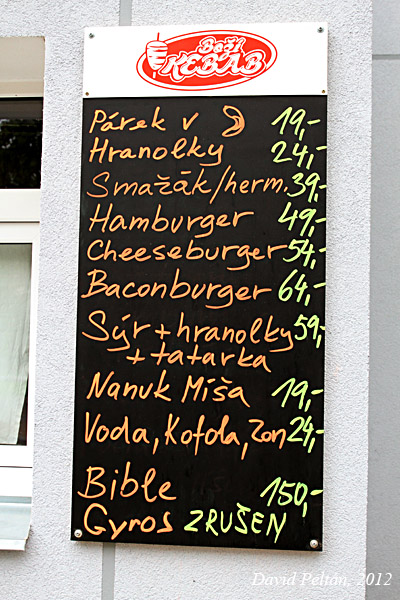 Boží
KEBAB
Párek v 19,-
Hranolky 24,-
Smažák/herm. 39,-
Hamburger 49,-
Cheeseburger 54,-
Baconburger 64,-
Sýr + hranolky 59,-
+ tatarka
Nanuk Míša 19,-
Voda, Kofola, Zon 24,-
Bible 150,-
Gyros ZRUŠEN
David Peltán, 2012